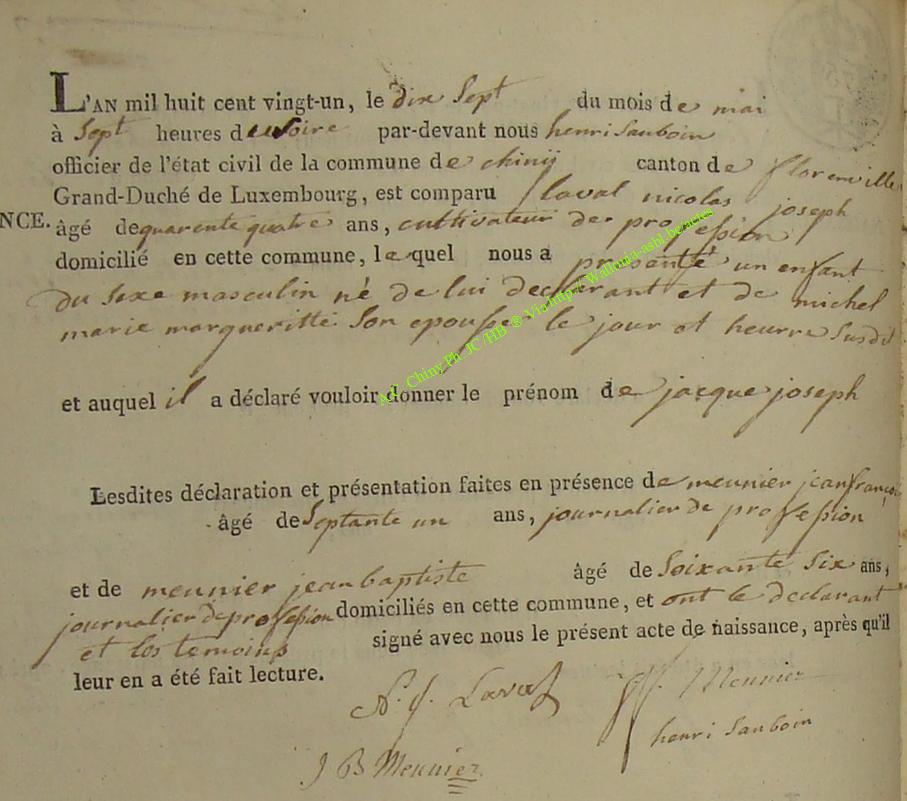 L'AN mil huit cent vingt-un, le dix Sept du mois de mai
à Sept heures de Soire par-devant nous henri Sauboin
officier de l'état civil de la commune de chinÿ canton de florenville
Grand-Duché de Luxembourg, est comparu laval nicolas joseph
NCE. âgé de quarente quatre ans, cultivateur de profession
domicilié en cette commune, lequel nous a presenté un enfant
du Sexe masculin né de lui declarant et de michel
marie margueritte Son epousse le jour et heurre Susdit
et auquel il a déclaré vouloir donner le prénom de jacque joseph
Lesdites déclaration et présentation faites en présence de meunier jean françois
âgé de Septante un ans, journalier de profession
et de meunier jean baptiste âgé de Soixante Six ans,
journalier de profession domiciliés en cette commune, et ont le declarant
et les temoins signé avec nous le présent acte de naissance, après qu'il
leur en a été fait lecture.
N. J. Laval
Meunier
henri Sauboin
J B Meunier
Chiny Ph. JC/HB ® Via http://Wallonia-asbl.be/actes